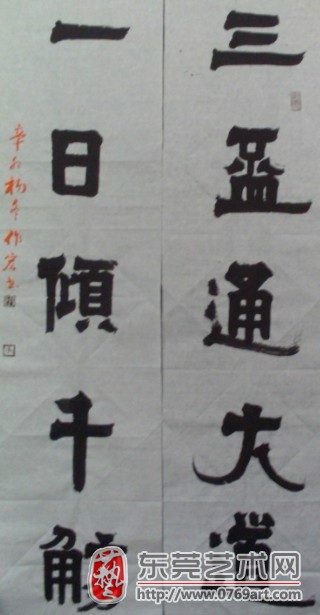 三盃通大道
一日傾千觴
辛卯 冬
藝
东莞艺术网
http://www.0769art.com